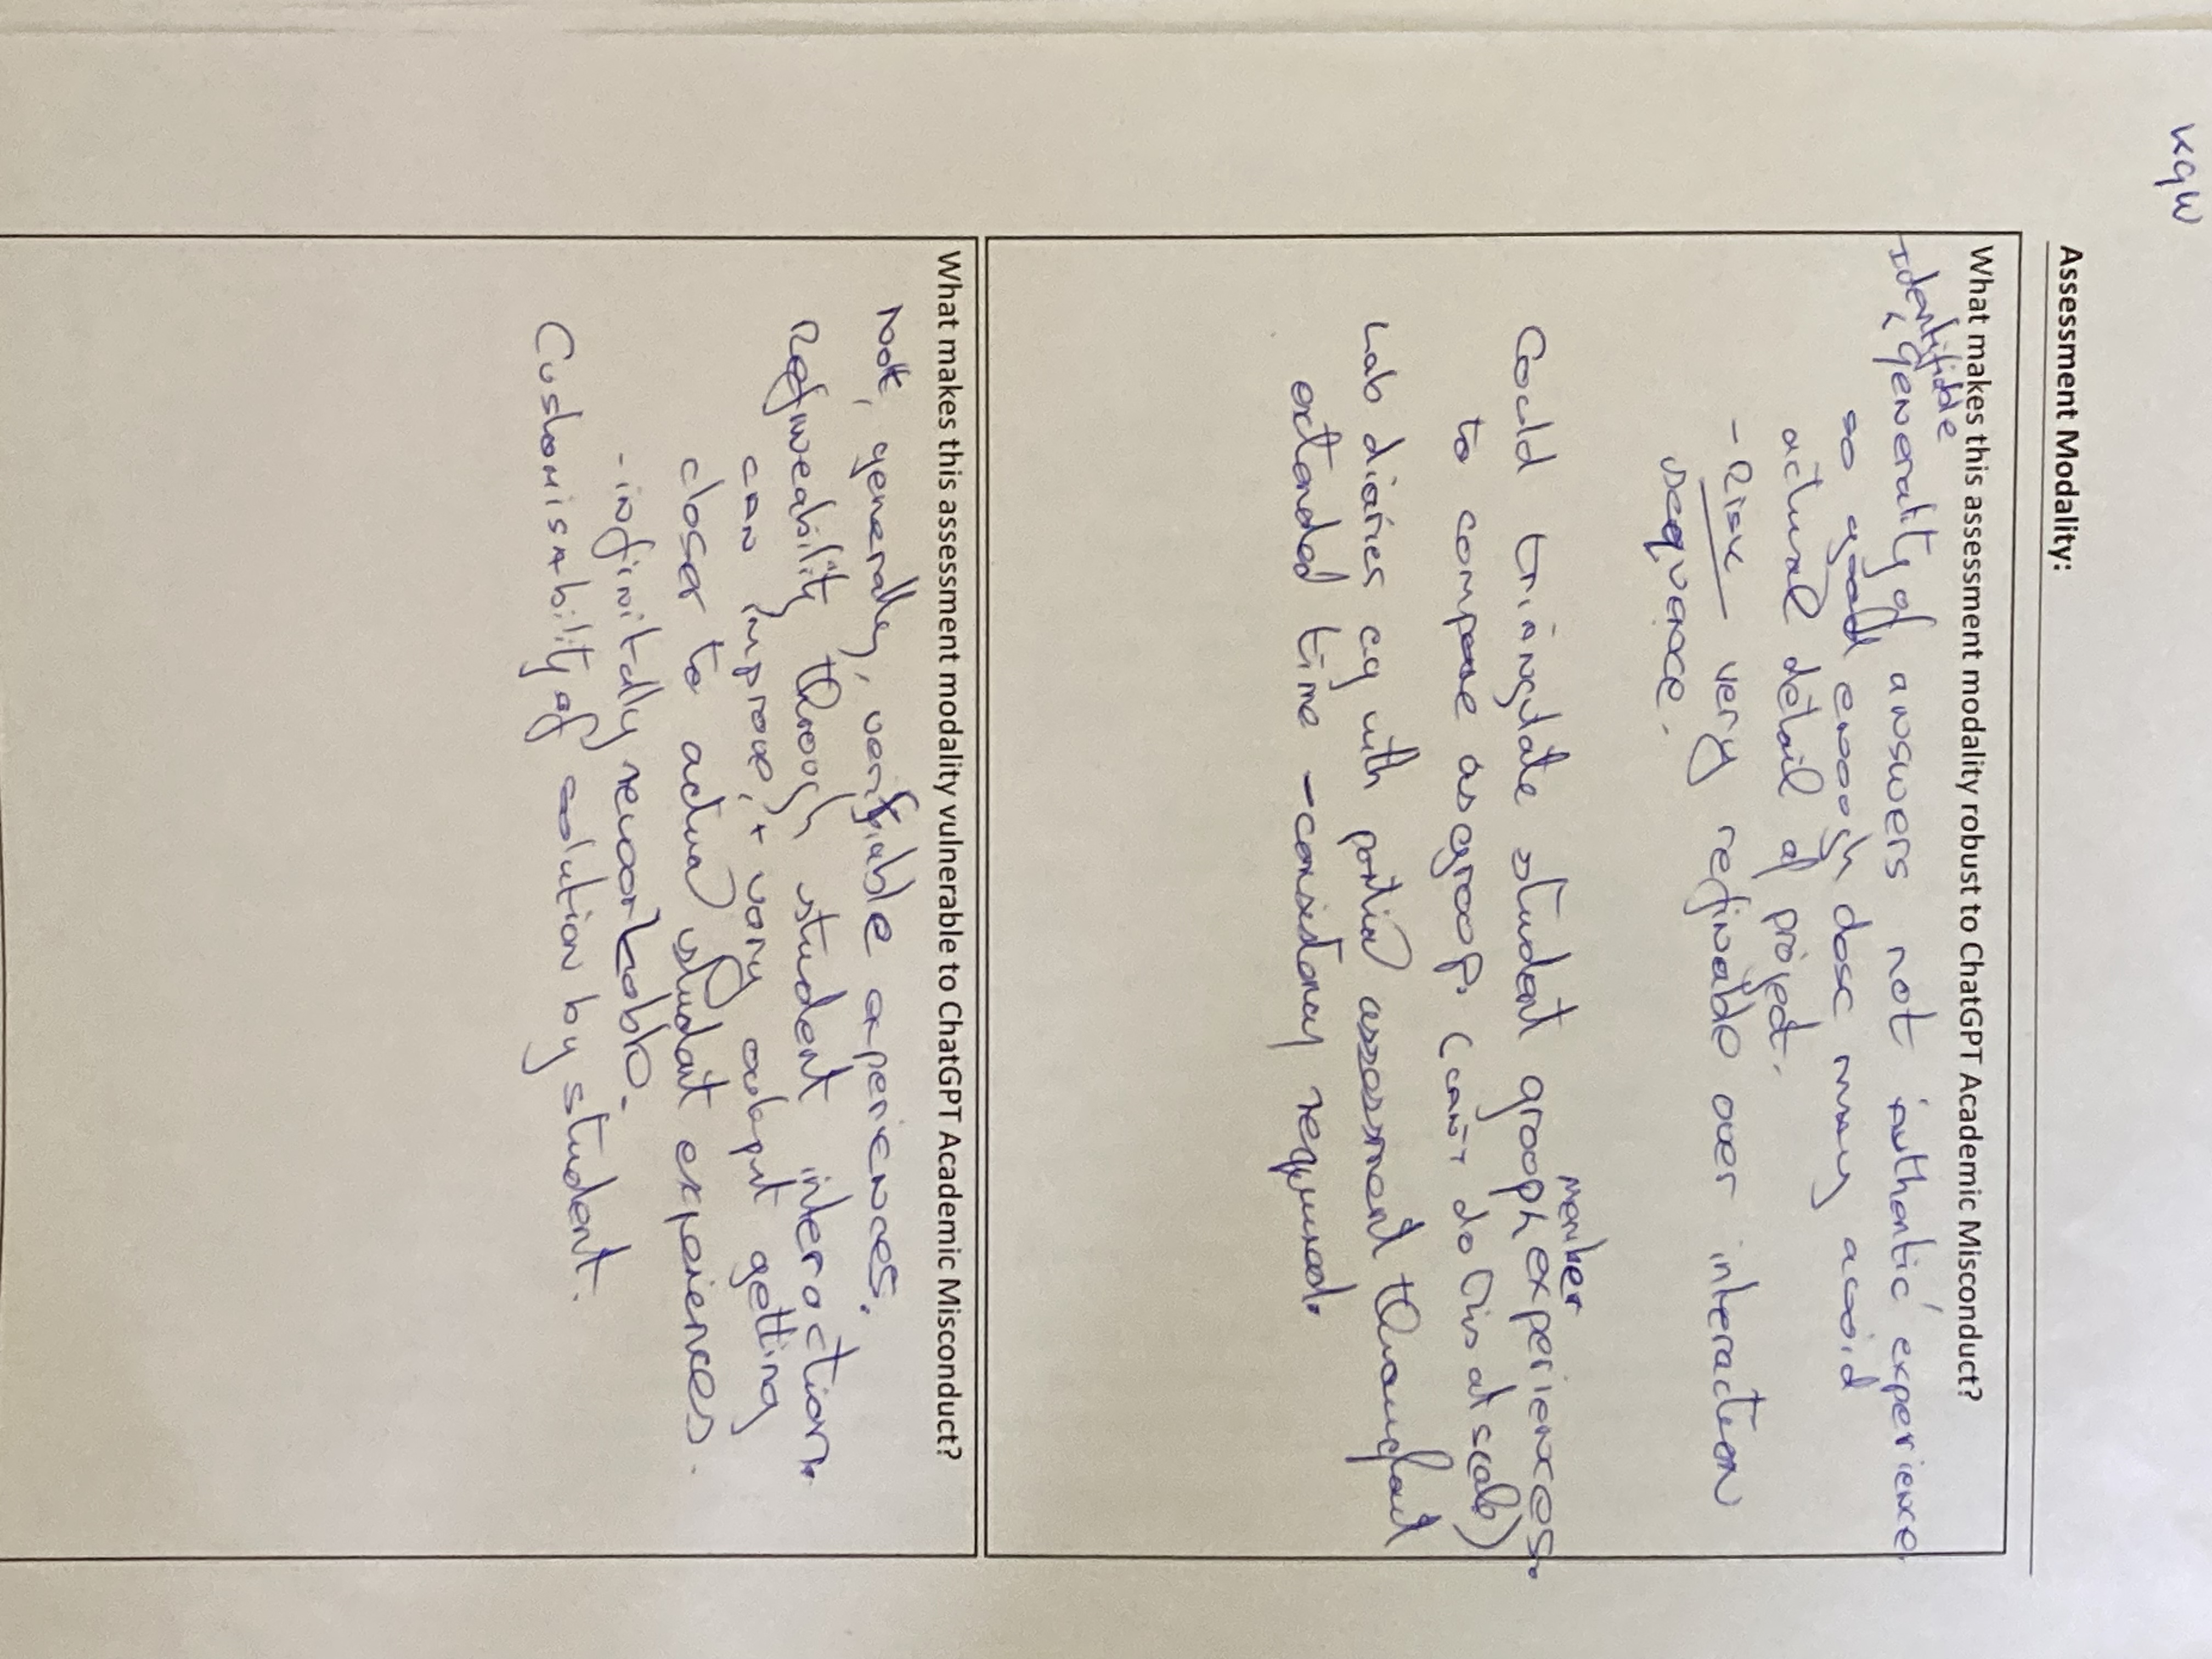 Kqw
Assessment Modality:
What makes this assessment modality robust to ChatGPT Academic Misconduct?
Identifiable
generality of answers not 'authentic' experience
so good enough dosc may avoid
actual detail of project.
- Risk - very refinable over interaction
sequence.
member
Could triangulate student group experiences.
to compare as group. (can't do this at scale)
Lab diaries eg with partial assessment throughout
extended time - consistency required.
What makes this assessment modality vulnerable to ChatGPT Academic Misconduct?
Not, generally, verifiable experiences.
Refineability through student interaction.
can improve, + vary output getting
closer to actual student experiences.
- infinitely reworkable.
Customisability of solution by student.